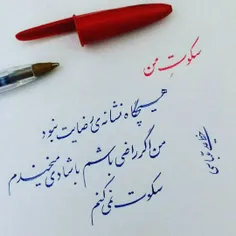 سکوتِ من
هیچگاه نشانه‌ی رضایت نبود
من اگر راضی باشم با شادی میخندم
سکوت نمی‌کنم